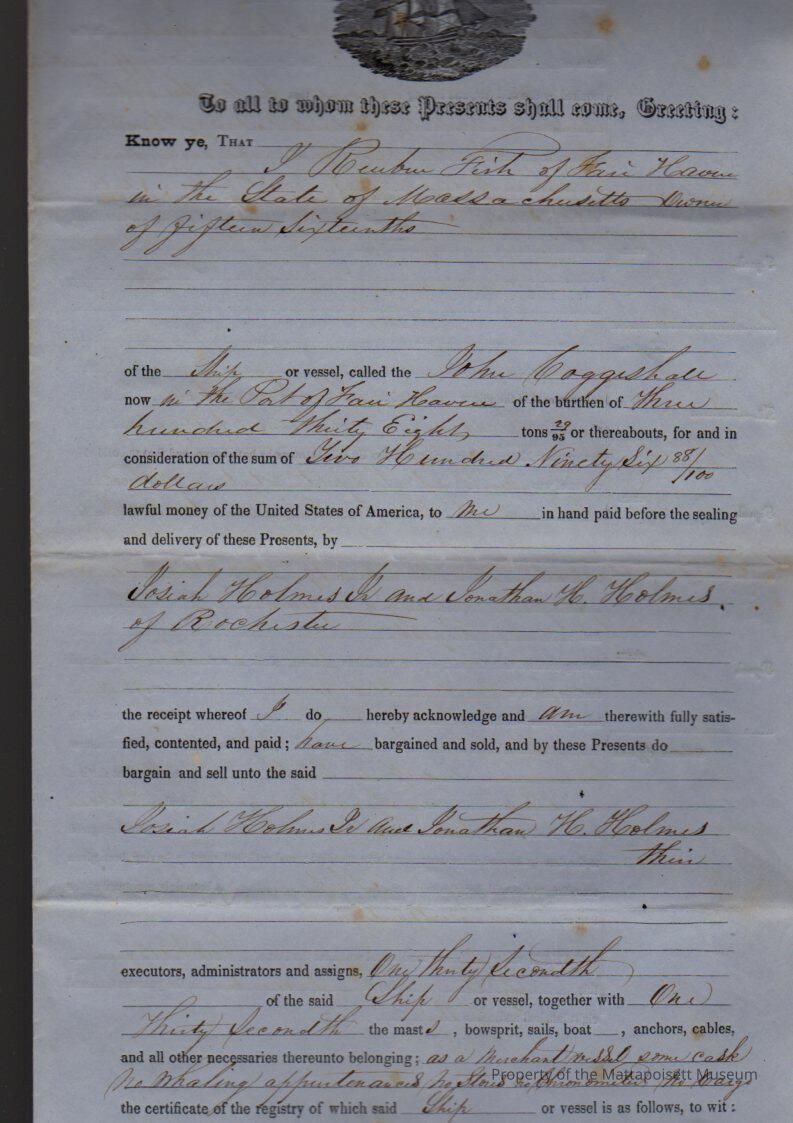 To all to whom these Presents shall come, Greeting:
Know ye, THAT
I Reuben Fish of Fair Haven
in the State of Massachusetts Owner
of fifteen Sixteenths
of the Ship or vessel, called the John Coggeshall
now in the Port of Fair Haven of the burthen of Three
hundred Thirty Eight tons 29/95 or thereabouts, for and in
consideration of the sum of Two Hundred Ninety Six 88/100
dollars
lawful money of the United States of America, to me in hand paid before the sealing
and delivery of these Presents, by
Josiah Holmes Jr and Jonathan H. Holmes
of Rochester
the receipt whereof I do hereby acknowledge and am therewith fully satis-
fied, contented, and paid; have bargained and sold, and by these Presents do
bargain and sell unto the said
Josiah Holmes Jr and Jonathan H. Holmes
their
executors, administrators and assigns, One thirty Secondth
of the said Ship or vessel, together with One
Thirty Secondth the masts, bowsprit, sails, boat, anchors, cables,
and all other necessaries thereunto belonging; as a Merchant vessel some cask
No Whaling appurtenances, No Stores no Chronometer, No Cargo
Property of the Mattapoisett Museum
the certificate of the registry of which said Ship or vessel is as follows, to wit: